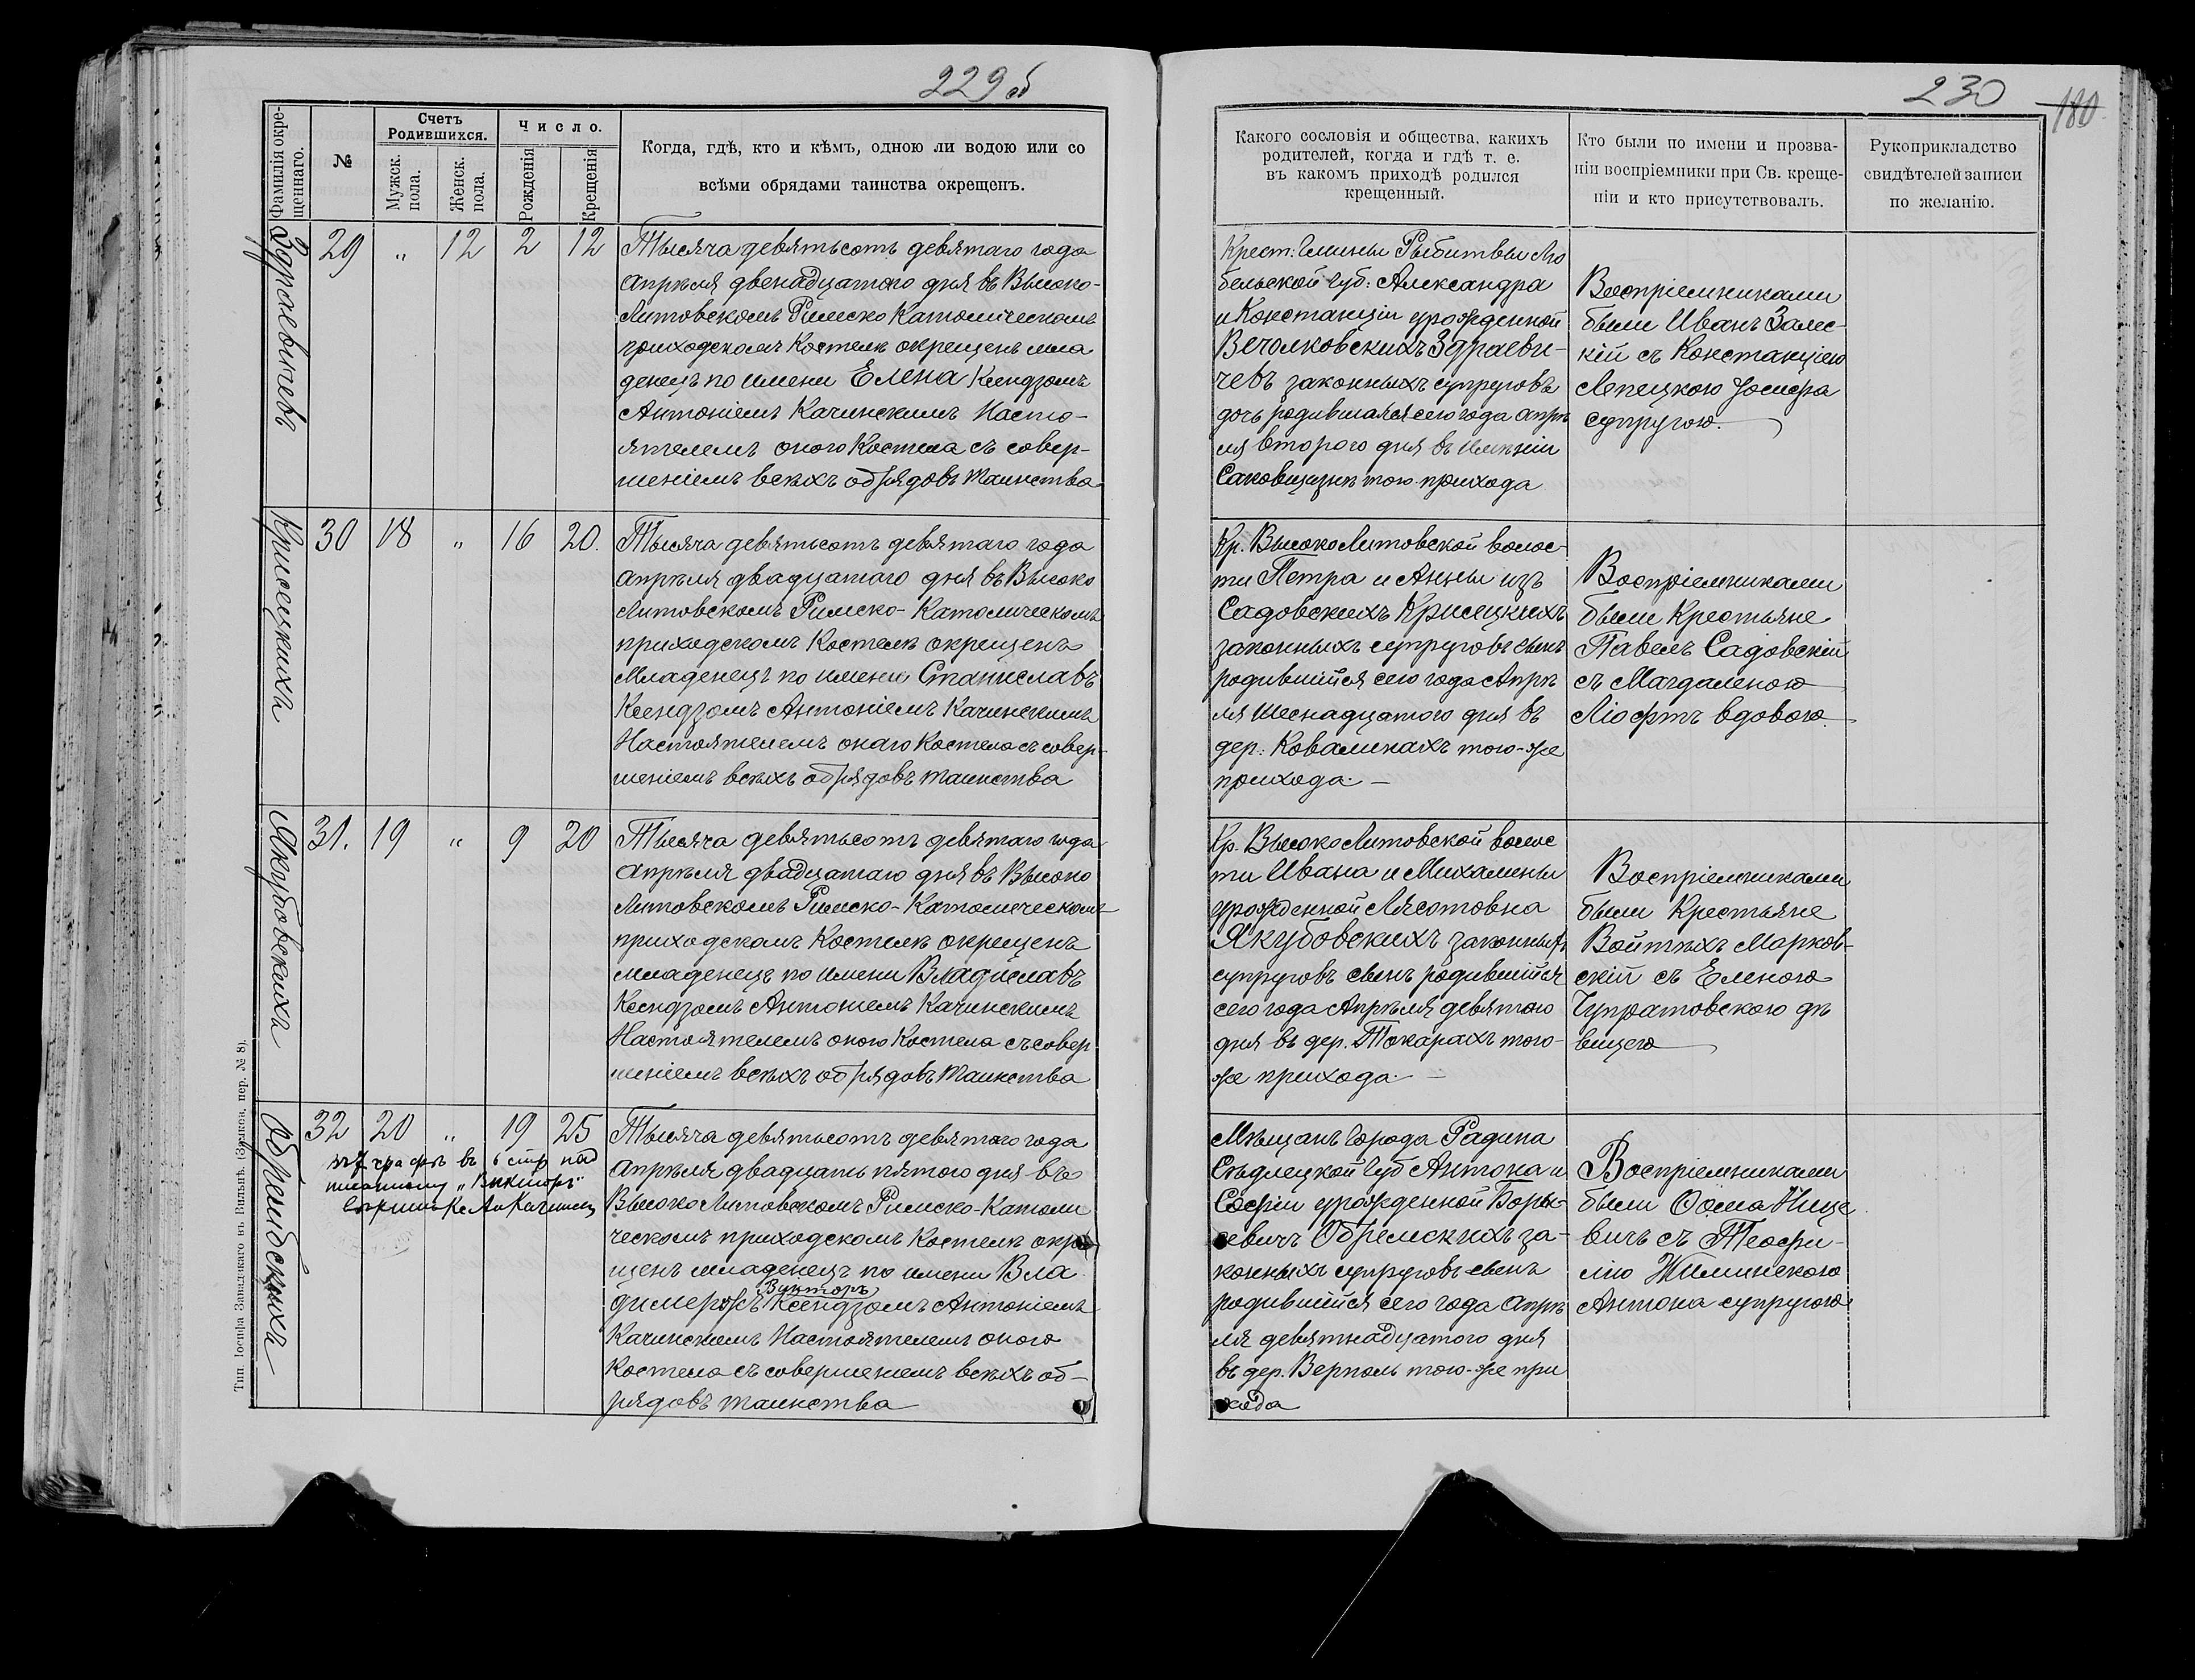 229 об
Фамилія окре-
щеннаго.
№
Счетъ
Родившихся.
Мужск.
пола.
Женск.
пола.
Число.
Рожденія
Крещенія
Когда, гдѣ, кто и кѣмъ, одною ли водою или со
всѣми обрядами таинства окрещенъ.
Здраевичевъ
29 „ 12 2 12
Тысяча девятьсотъ девятаго года
Апрѣля двенадцатого дня въ Высоко-
Литовскомъ Римско Католическомъ
приходскомъ Костелѣ окрещенъ мла
денецъ по имени Елена Ксендзомъ
Антоніемъ Качинскимъ Насто-
ятелемъ оного Костела съ совер-
шеніемъ всѣхъ обрядовъ таинства
Крисецкихъ
30 18 „ 16 20.
Тысяча девятьсотъ девятаго года
Апрѣля двадцатаго дня въ Высоко
Литовскомъ Римско-Католическомъ
приходскомъ Костелѣ окрещенъ
Младенецъ по имени Станиславъ
Ксендзомъ Антоніемъ Качинскимъ
Настоятелемъ онаго Костела съ совер-
шеніемъ всѣхъ обрядовъ таинства
Якубовскихъ
31. 19 „ 9 20
Тысяча девятьсотъ девятаго года
Апрѣля двадцатаго дня въ Высоко
Литовскомъ Римско-Католическомъ
приходскомъ Костелѣ окрещенъ
младенецъ по имени Владиславъ
Ксендзомъ Антоніемъ Качинскимъ
Настоятелемъ оного Костела съ совер
шеніемъ всѣхъ обрядовъ таинства
Обремскихъ
32 20 „ 19 25
графѣ въ 6 стр над
писанному „Викторъ"
Качинск
Тысяча девятьсотъ девятого года
Апрѣля двадцать пятого дня въ
Высоко Литовскомъ Римско-Католи
ческомъ приходскомъ Костелѣ окре
щенъ младенецъ по имени Вла
Викторъ
димеръ Ксендзомъ Антоніемъ
Качинскимъ Настоятелемъ оного
Костела съ совершеніемъ всѣхъ об-
рядовъ таинства
Тип. Іосифа Завадзкаго въ Вильнѣ. (Замков. пер. № 8).
230
180
Какого сословія и общества, какихъ
родителей, когда и гдѣ т. е.
въ какомъ приходѣ родился
крещенный.
Кто были по имени и прозва-
ніи воспріемники при Св. креще-
ніи и кто присутствовалъ.
Рукоприкладство
свидѣтелей записи
по желанію.
Крест: Гмины Рыбитвы Лю
бельской губ: Александра
и Констанціи урожденной
Вечолковскихъ Здраеви-
чевъ законныхъ супруговъ
дочь родившаяся сего года апрѣ
ля второго дня въ имѣніи
Саковщизнѣ того прихода
Воспріемниками
были Иванъ Залес-
кій съ Констанціею
Лепецкого Іосифа
супругою.
Кр. Высоко Литовской волос-
ти Петра и Анны изъ
Садовскихъ Крисецкихъ
законныхъ супруговъ сынъ
родившійся сего года Апрѣ
ля шеснадцатого дня въ
дер: Коваликахъ того-же
прихода. —
Воспріемниками
были Крестьяне
Павелъ Садовскій
съ Магдаленою
Ліофтъ вдовою.
Кр. Высоко Литовской волос
ти Ивана и Михалины
урожденной Лясотовна
Якубовскихъ законныхъ
супруговъ сынъ родившійся
сего года Апрѣля девятого
дня въ дер. Токарахъ того-
же прихода. —
Воспріемниками
были Крестьяне
Войтѣхъ Марков-
скій съ Еленою
Чупратовскою дѣ
вицею
Мѣщанъ города Радина
Сѣдлецкой губ Антона и
Софіи урожденной Боры-
севичъ Обремскихъ за-
конныхъ супруговъ сынъ
родившійся сего года апрѣ
ля девятнадцатого дня
въ дер. Верполь того-же при
хода
Воспріемниками
были Ѳома Нице
вичъ съ Теофи-
лію Жилинского
Антона супругою